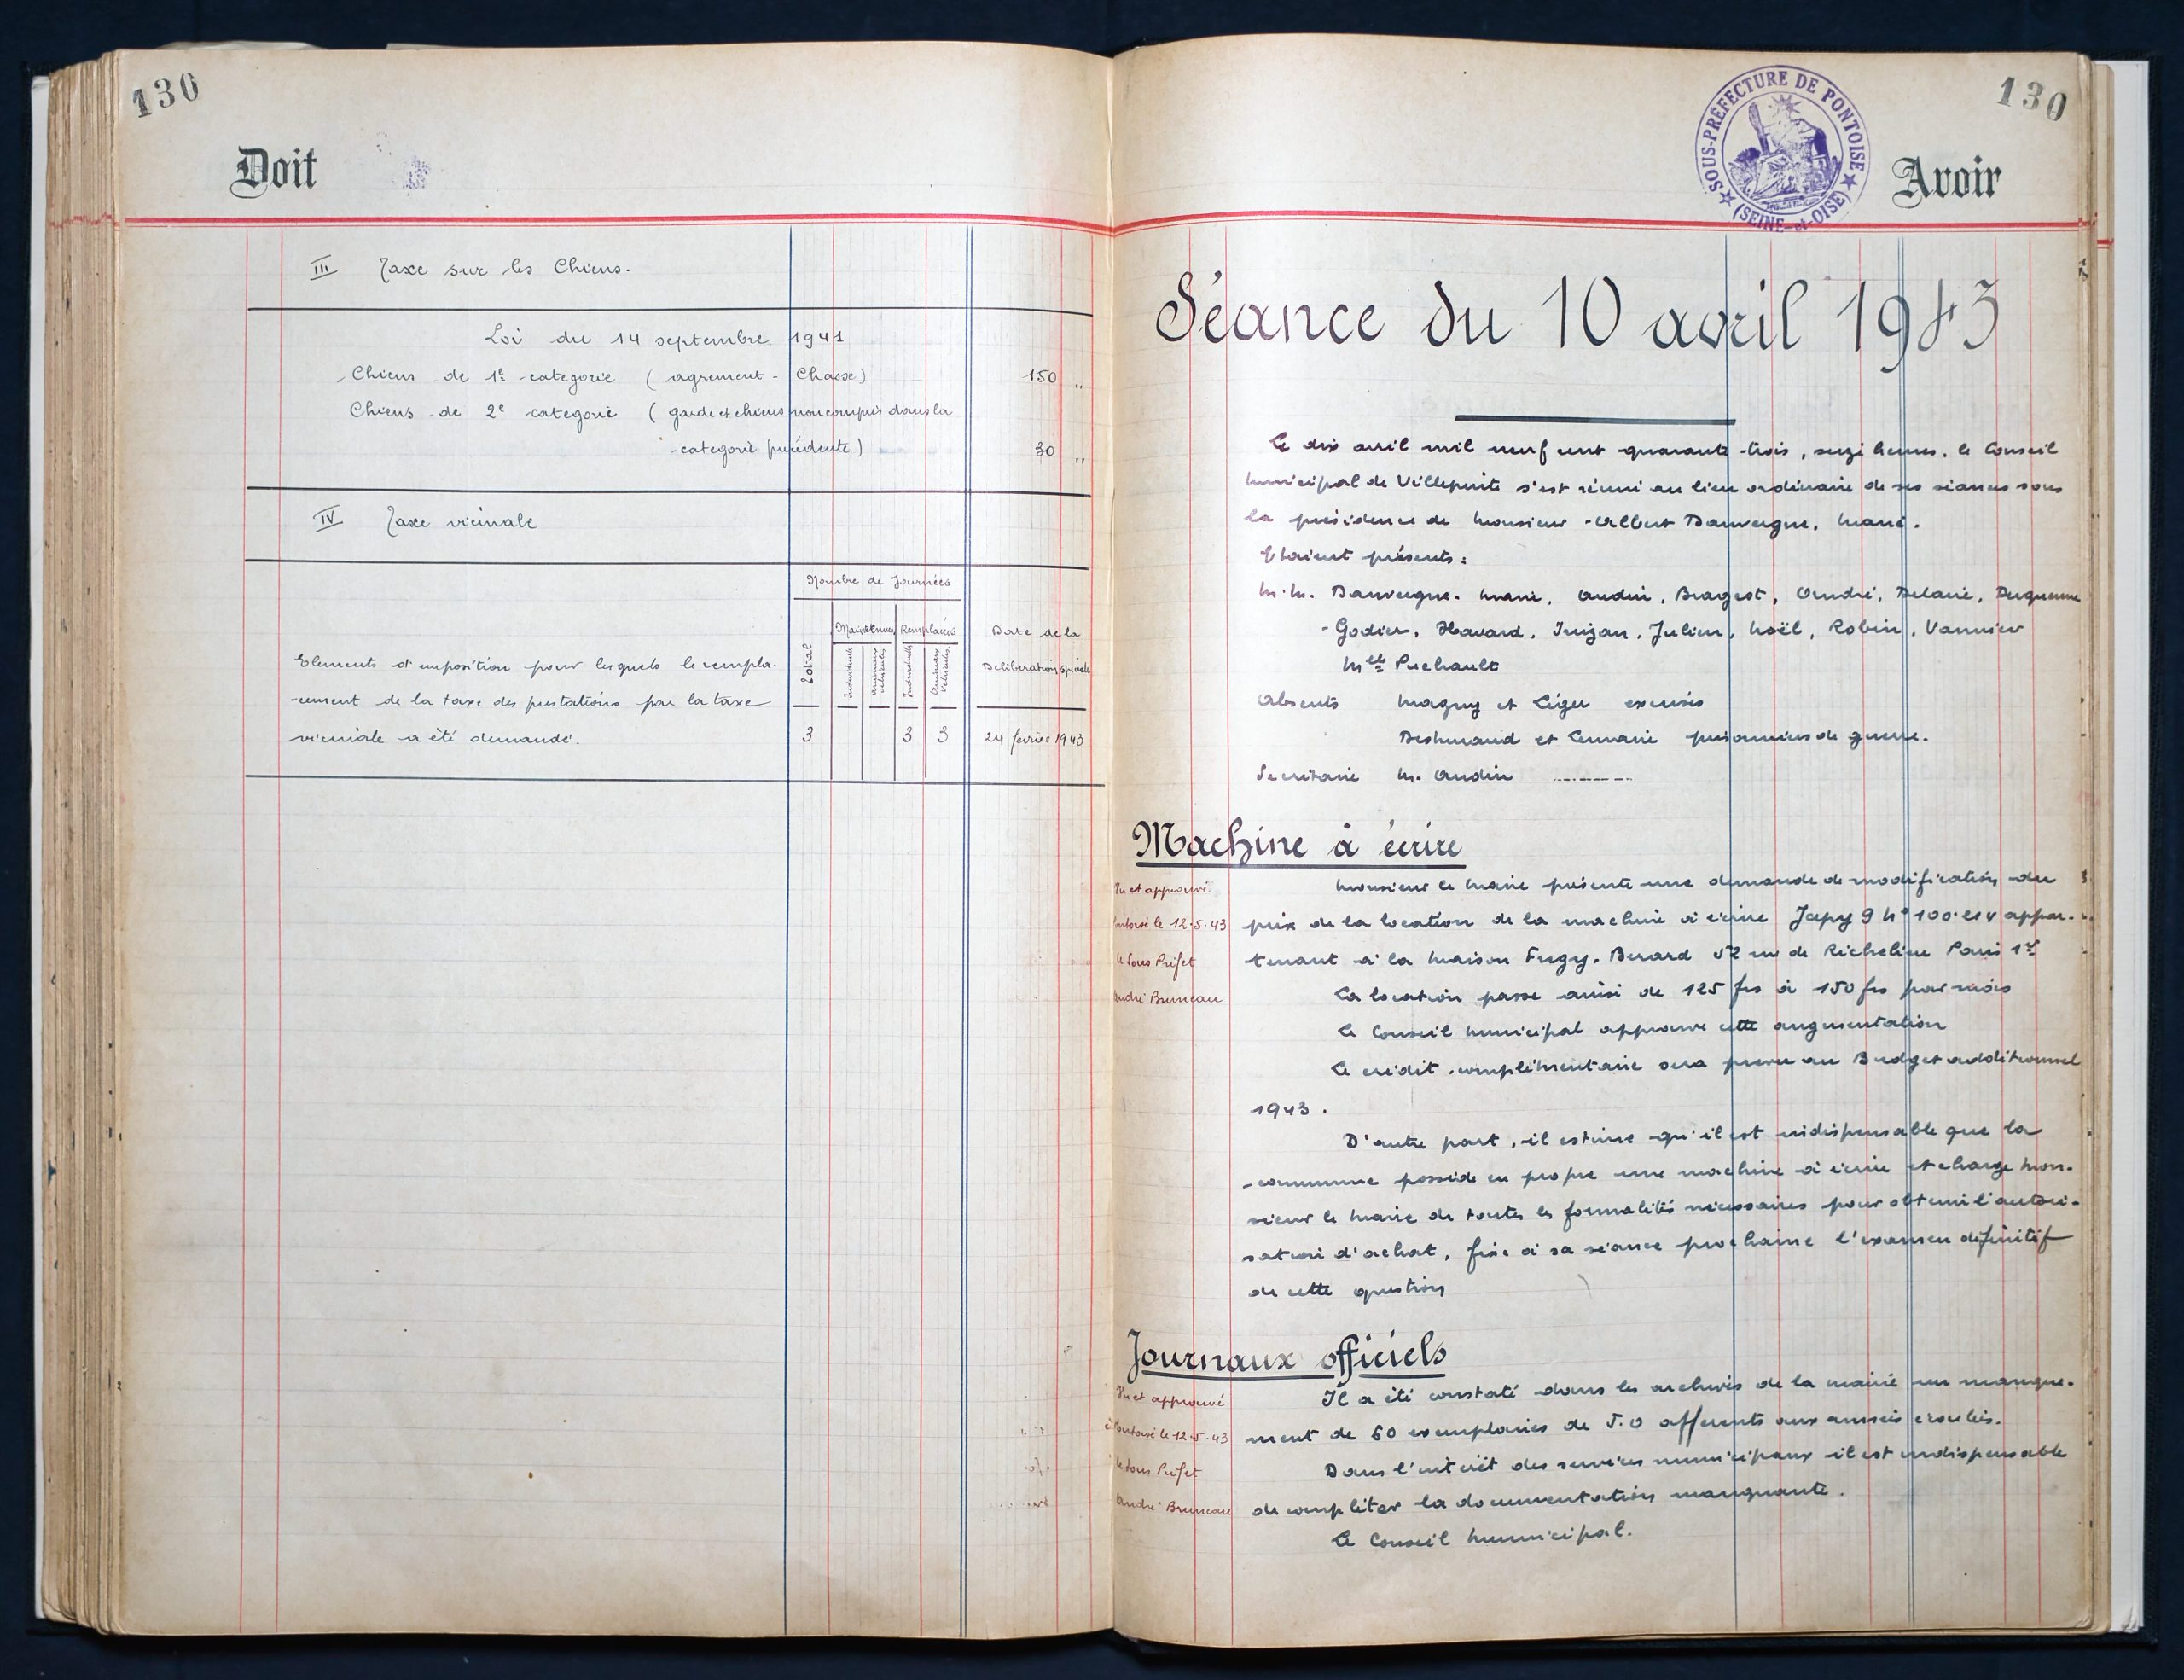 130
Doit
III Taxe sur les Chiens.
Loi du 14 septembre 1941
Chiens de 1e categorie (agrement - Chasse) 150 "
Chiens de 2e categorie (garde et chiens non compris dans la
categorie précédente) 30 "
IV Taxe vicinale
Nombre de Journées
Total
Maintenues Remplacées
Individuelle
Animaux véhicules
Individuelle
Animaux Véhicules
Date de la
Déliberation spéciale
Elements d'imposition pour lesquels le rempla-
-cement de la taxe des prestations par la taxe
vicinale a été demandé.
3 3 3 24 fevrier 1943
130
SOUS-PRÉFECTURE DE PONTOISE
(SEINE-et-OISE)
Avoir
Séance du 10 avril 1943
Le dix avril mil neuf cent quarante-trois, seize heures, le Conseil
Municipal de Villepinte s'est réuni au lieu ordinaire de ses séances sous
la présidence de Monsieur Albert Dauvergne, Maire.
Etaient présents:
M.M. Dauvergne. Maire, Audin, Bragest, André, Delarie, Duquenne
Godier, Havard, Julien, Noël, Robin, Vannier
Melle Puchault
Absents Magny et Léger excusés
et Lemaire prisonniers de guerre.
Secrétaire M. Audin
Machine à écrire
Vu et approuvé
Pontoise le 12.5.43
le Sous Préfet
André Bruneau
Monsieur le Maire présente une demande de modification du
prix de la location de la machine à écrire Japy 9 N° 100.214 appar-
tenant à la Maison Fregy. Berard 52 rue de Richelieu Paris 1er
La location passe ainsi de 125 frs à 150 frs par mois
Le Conseil Municipal approuve cette augmentation
Le crédit complémentaire sera prevu au Budget additionnel
1943.
D'autre part, il estime qu'il est indispensable que la
commune possède en propre une machine à écrire et charge Mon-
sieur le Maire de toutes les formalités nécessaires pour obtenir l'autori-
sation d'achat, fixe à sa séance prochaine l'examen définitif
de cette question
Journaux officiels
Vu et approuvé
à Pontoise le 12.5.43
le Sous Préfet
André Bruneau
Il a été constaté dans les archives de la mairie un manque-
ment de 60 exemplaires de J.O afferents aux années écoulées.
Dans l'intérêt des services municipaux il est indispensable
de compléter la documentation manquante.
Le Conseil Municipal.